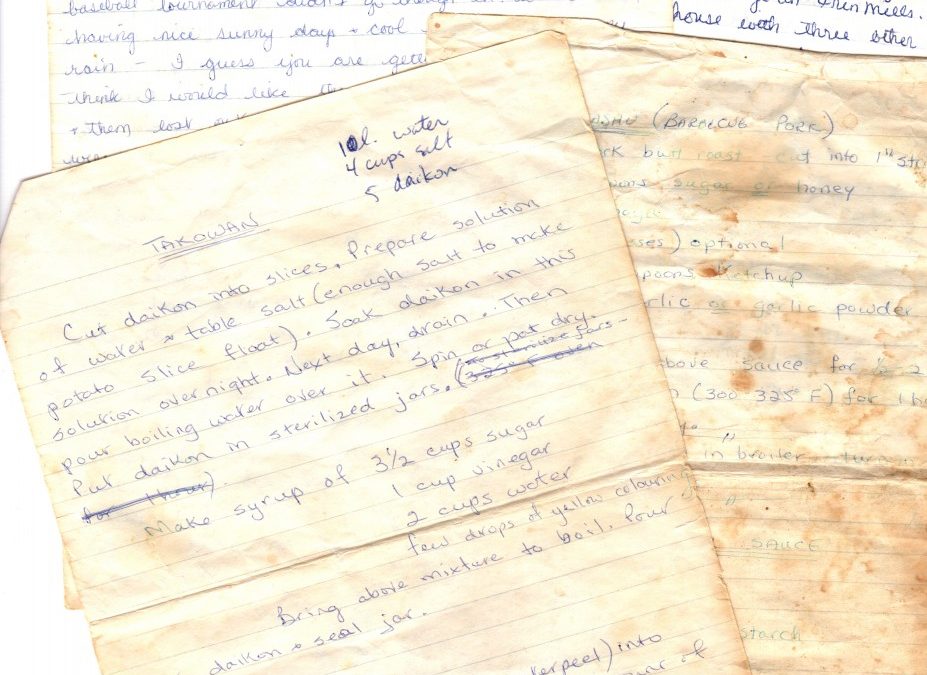 baseball tournament didn't go
having nice sunny days + cool
rain - I guess you are
think I would like
+ them lost
house with three other
10l. water
4 cups salt
5 daikon
TAKOWAN
Cut daikon into slices. Prepare solution
of water & table salt (enough salt to make
potato slice float). Soak daikon in this
solution overnight. Next day, drain. Then
pour boiling water over it. Spin or pat dry.
Put daikon in sterilized jars. (to sterilize jars -
325° F oven
for 1 hour).
Make syrup of 3½ cups sugar
1 cup vinegar
2 cups water
few drops of yellow colouring
Bring above mixture to boil. Pour
daikon & seal jar.
peel) into
of
(BARBECUE PORK)
butt roast cut into 1"
sugar or honey
optional
ketchup
or garlic powder
above sauce for 2
(300 325° F) for 1
"
in broiler - turn
"
SAUCE
starch